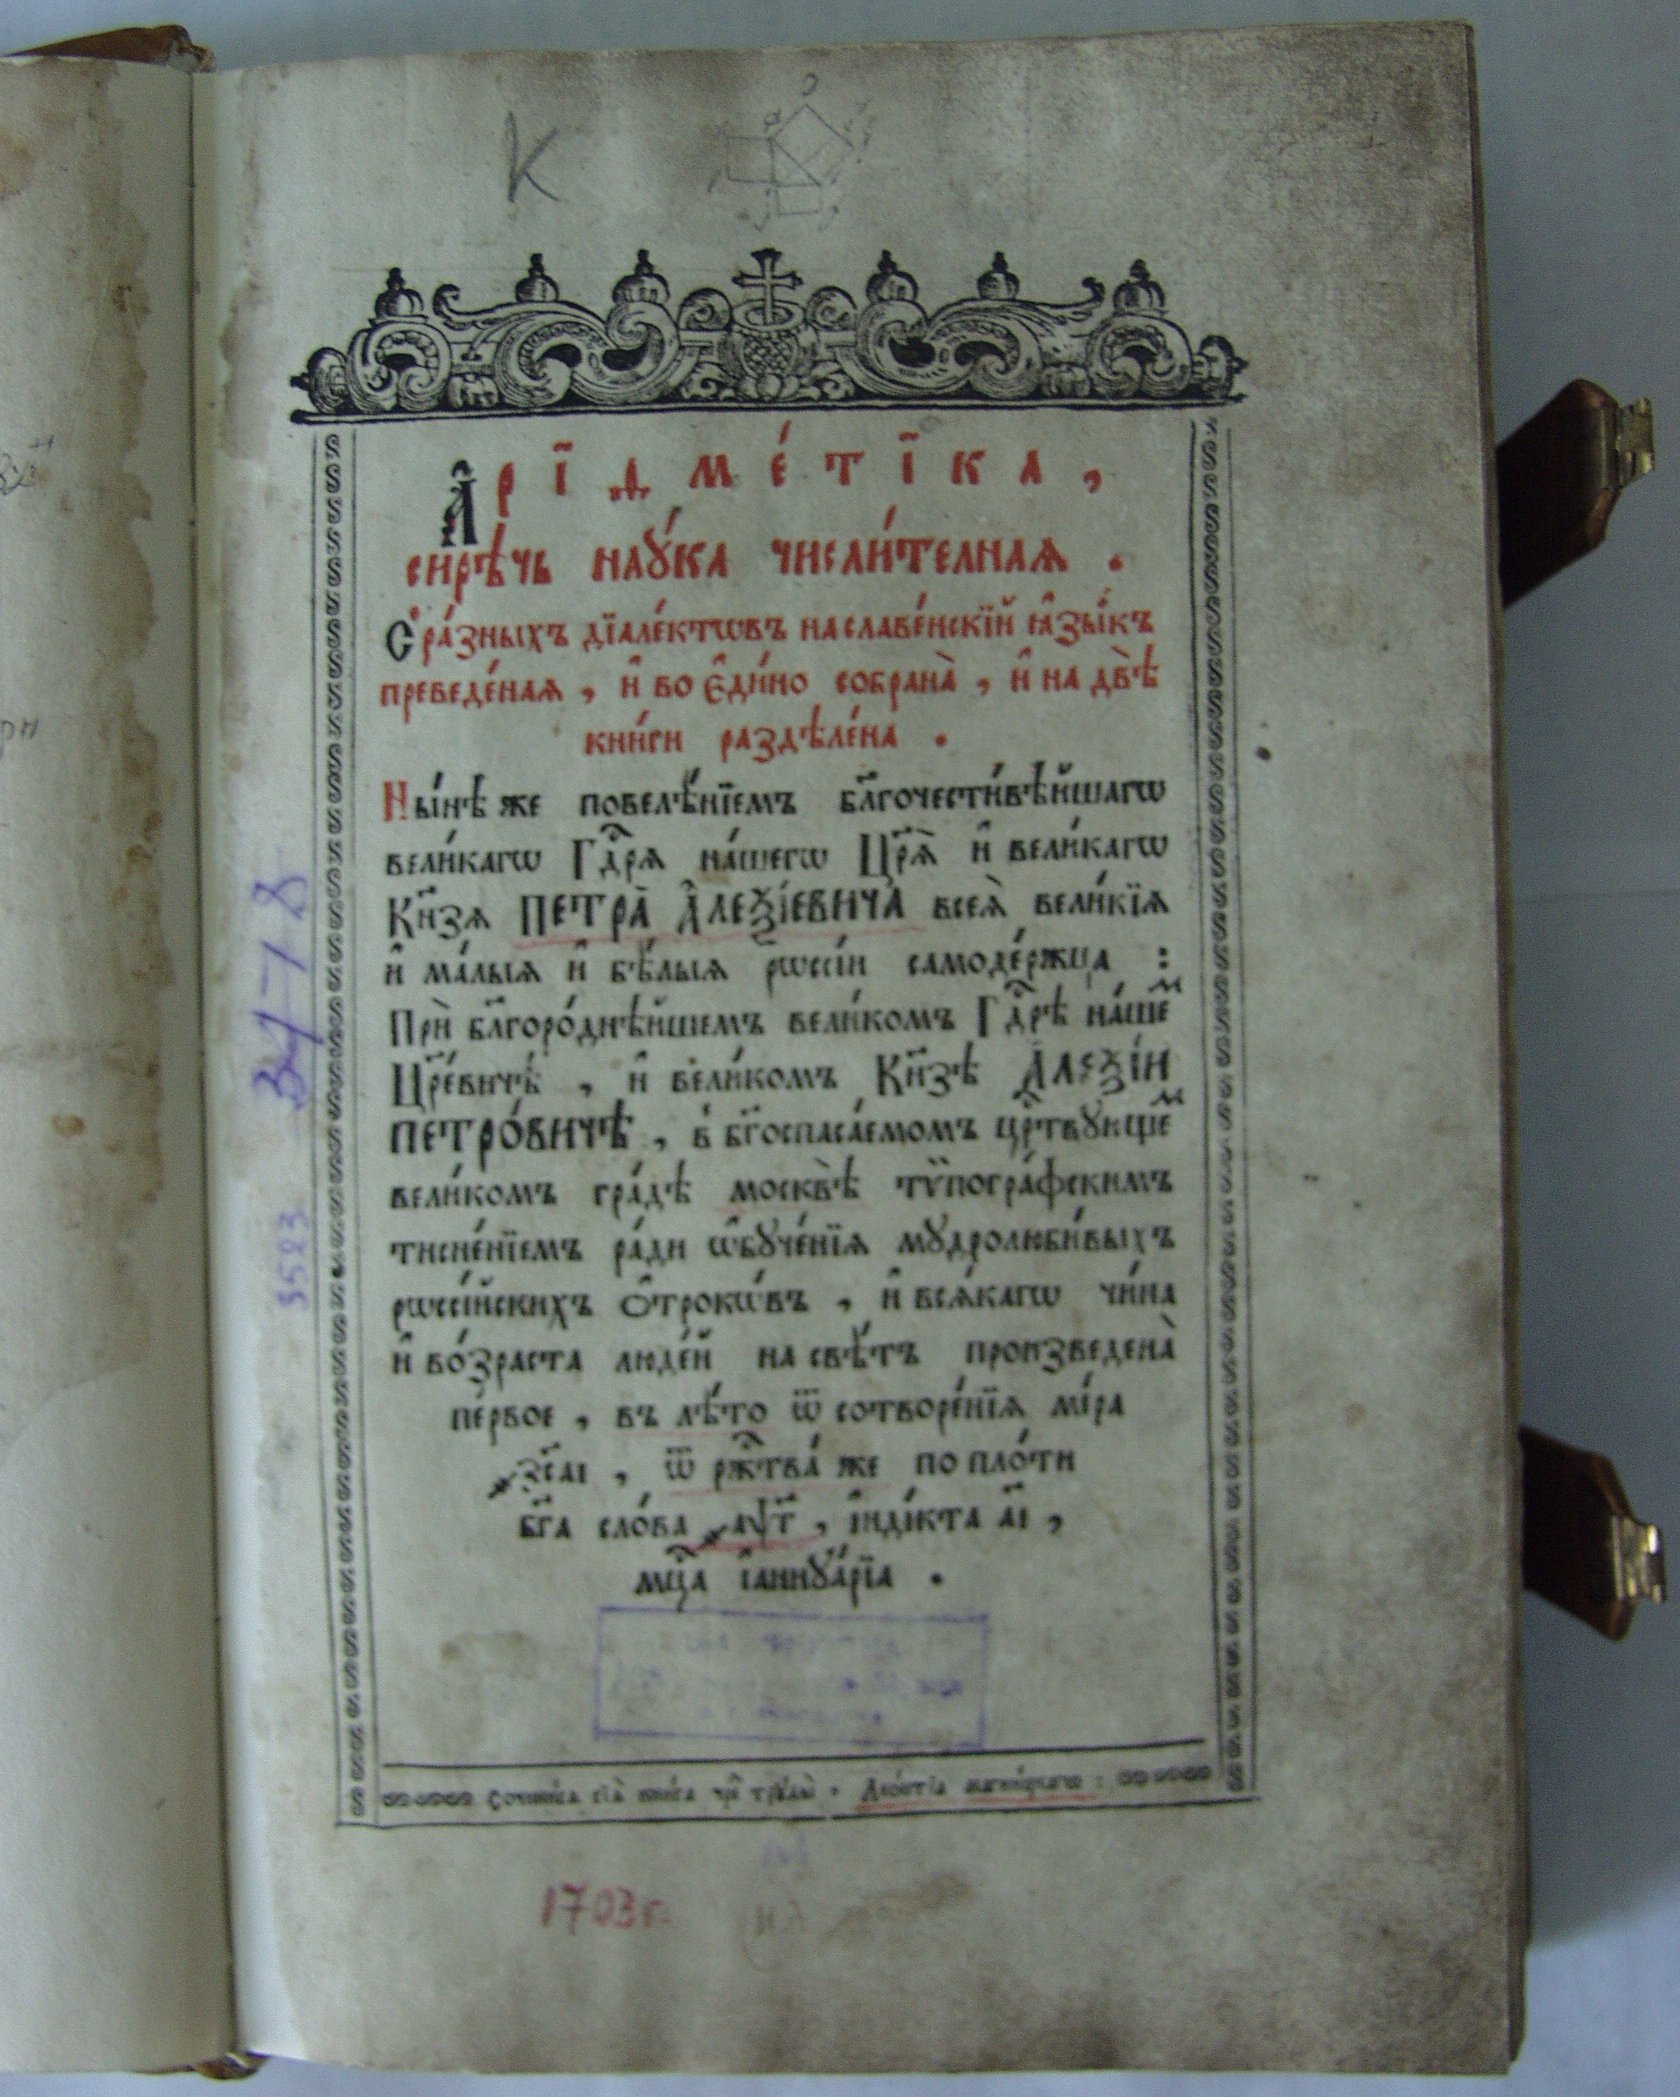 К
А҆рїѳме́тїка,
сирѣ́чь наꙋ́ка числи́телная.
С ра́зныхъ дїале́ктѡвъ на славе́нскїй ꙗ҆зы́къ
преведе́ная, и҆ во є҆ди́но собрана̀, и҆ на двѣ̀
кни́ги раздѣле́на.
Ны́нѣ же повелѣ́нїемъ бл҃гочести́вѣйшагѡ
вели́кагѡ Гдⷭ҇рѧ на́шегѡ Цр҃ѧ̀ и҆ вели́кагѡ
Кн҃зѧ ПЕТРА̀ А҆ЛЕѮІ́ЕВИЧА всеѧ̀ вели́кїѧ
и҆ ма́лыѧ и҆ бѣ́лыѧ рѡссі́и самоде́ржца :
Прѝ бл҃горо́днѣйшемъ вели́комъ Гдⷭ҇рѣ на́шеⷨ
Цр҃е́вичѣ, и҆ вели́комъ Кн҃зѣ А҆ЛЕѮІ́И
ПЕТРО́ВИЧѢ, в̾ бг҃оспаса́емомъ црⷭ҇твꙋющеⷨ
вели́комъ гра́дѣ москвѣ̀ тѷпогра́фскимъ
тисне́нїемъ ра́ди ѡ҆бꙋче́нїѧ мꙋдролюби́выхъ
рѡссі́йскихъ ѻ҆трокѡ́въ, и҆ всѧ́кагѡ чи́на
и҆ во́зраста люде́й на свѣ́тъ произведена̀
пе́рвое, въ лѣ́то ѿ сотворе́нїѧ мі́ра
҂зс҃аі, ѿ ржⷭ҇тва́ же по пло́ти
бг҃а сло́ва ҂аѱ҃г, і҆ндікта а҃і,
мцⷭ҇а і҆аннꙋа́рїа.
Сочинисѧ сїѧ̀ книга чреⷥ трꙋды̀ Леѻ́нтїа магни́цкагѡ :
3478
3523
1703 г.